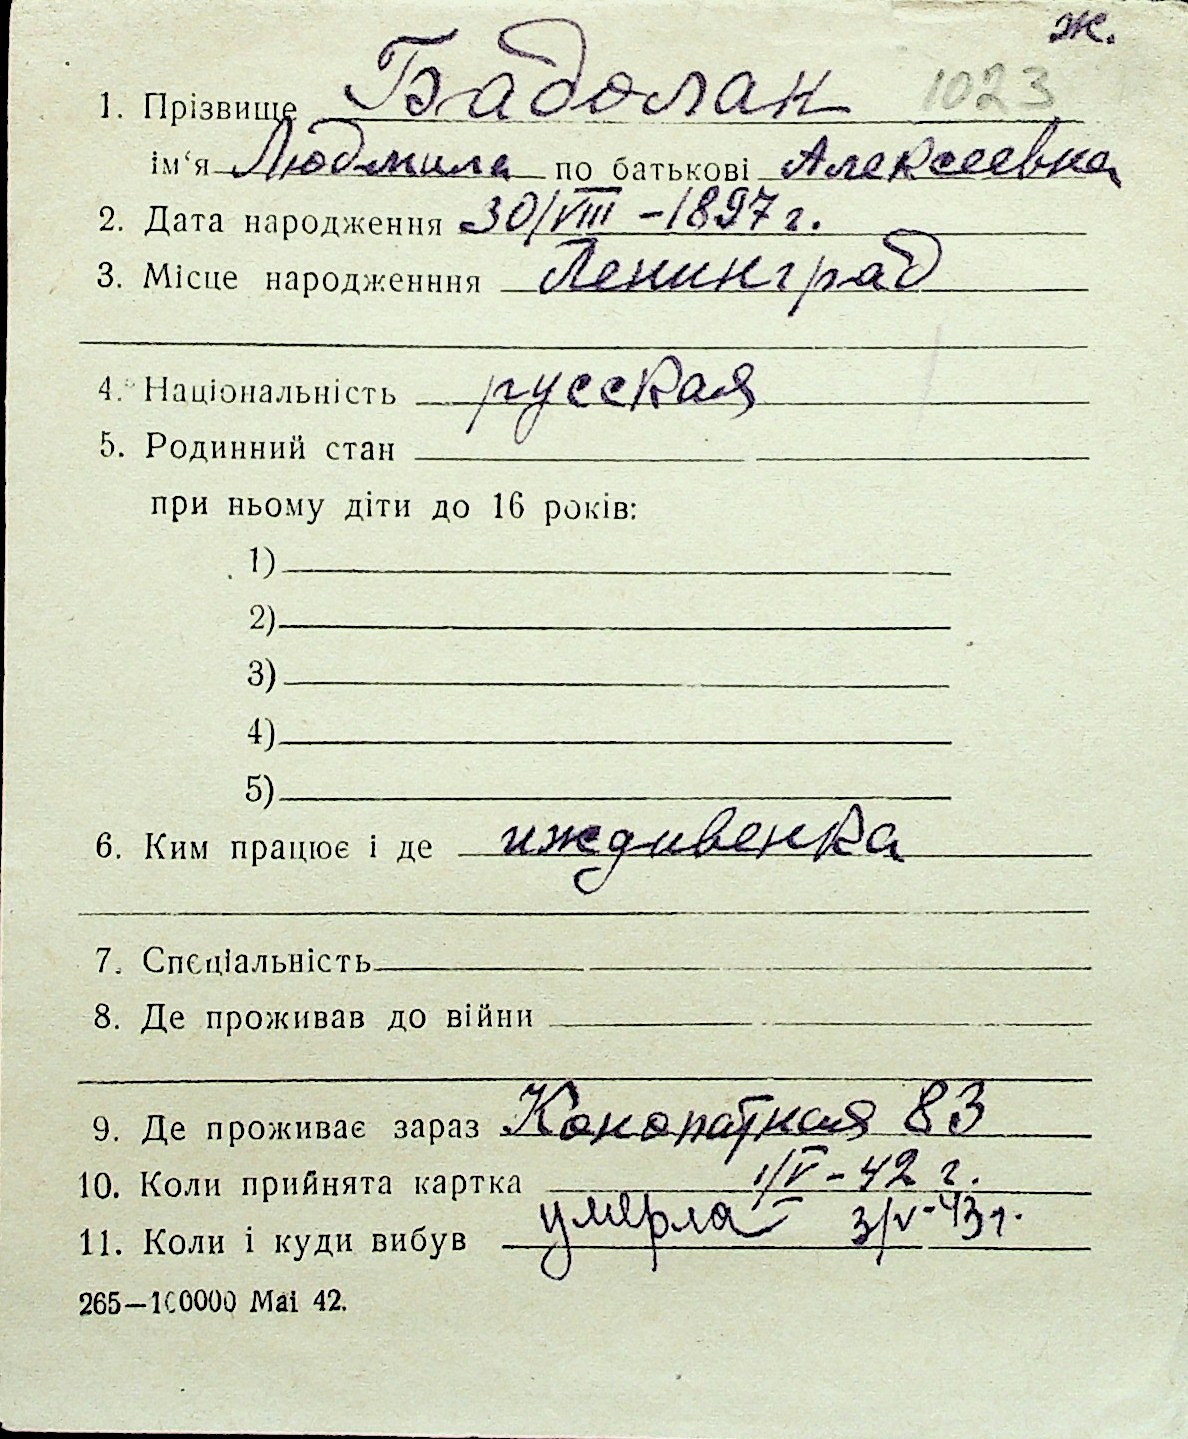 ж.
1. Прізвище Бадолан 1023
ім‘я Людмила по батькові Алексеевна
2. Дата народження 30/VIII -1897 г.
3. Місце народженння Ленинград
4. Національність русская
5. Родинний стан
при ньому діти до 16 років:
1)
2)
3)
4)
5)
6. Ким працює і де иждивенка
7. Спєціальність
8. Де проживав до війни
9. Де проживає зараз Конопатная 83
10. Коли прийнята картка 1/V - 42 г.
11. Коли і куди вибув умерла 3/V-43г.
265—100000 Mai 42.